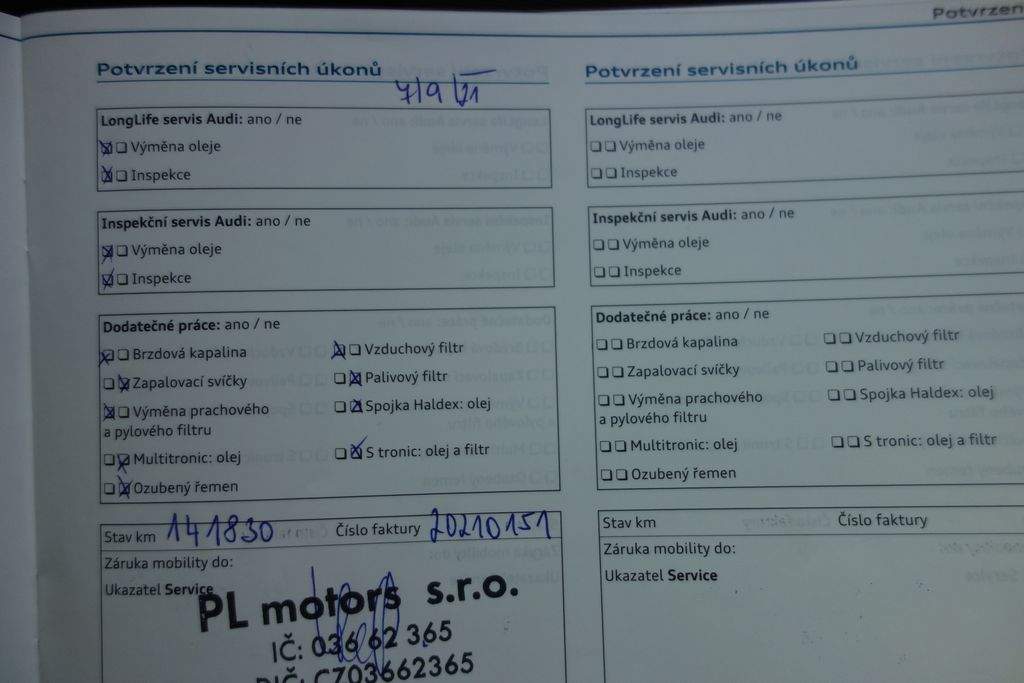 Potvrzen
Potvrzení servisních úkonů
7/9/21
LongLife servis Audi: ano / ne
Výměna oleje
Inspekce
Inspekční servis Audi: ano / ne
Výměna oleje
Inspekce
Dodatečné práce: ano / ne
Brzdová kapalina
Vzduchový filtr
Zapalovací svíčky
Palivový filtr
Výměna prachového
a pylového filtru
Spojka Haldex: olej
Multitronic: olej
S tronic: olej a filtr
Ozubený řemen
Stav km 141830 Číslo faktury 20210151
Záruka mobility do:
Ukazatel Service
PL motors s.r.o.
IČ: 036 62 365
DIČ: CZ03662365
Potvrzení servisních úkonů
LongLife servis Audi: ano / ne
Výměna oleje
Inspekce
Inspekční servis Audi: ano / ne
Výměna oleje
Inspekce
Dodatečné práce: ano / ne
Brzdová kapalina
Vzduchový filtr
Zapalovací svíčky
Palivový filtr
Výměna prachového
a pylového filtru
Spojka Haldex: olej
Multitronic: olej
S tronic: olej a filtr
Ozubený řemen
Stav km Číslo faktury
Záruka mobility do:
Ukazatel Service